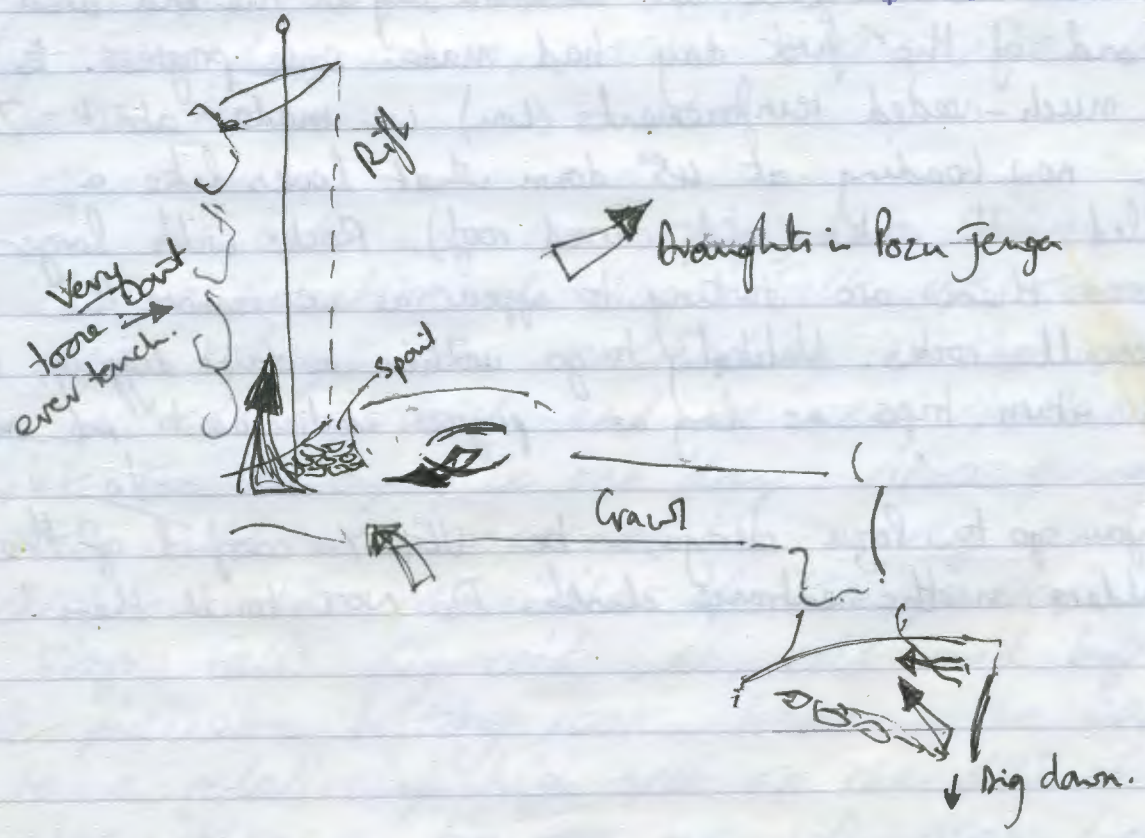 Rift
Draughts in Pozu Jenga
Very
loose. Don't
ever touch.
Spoil
Crawl
Dig down.